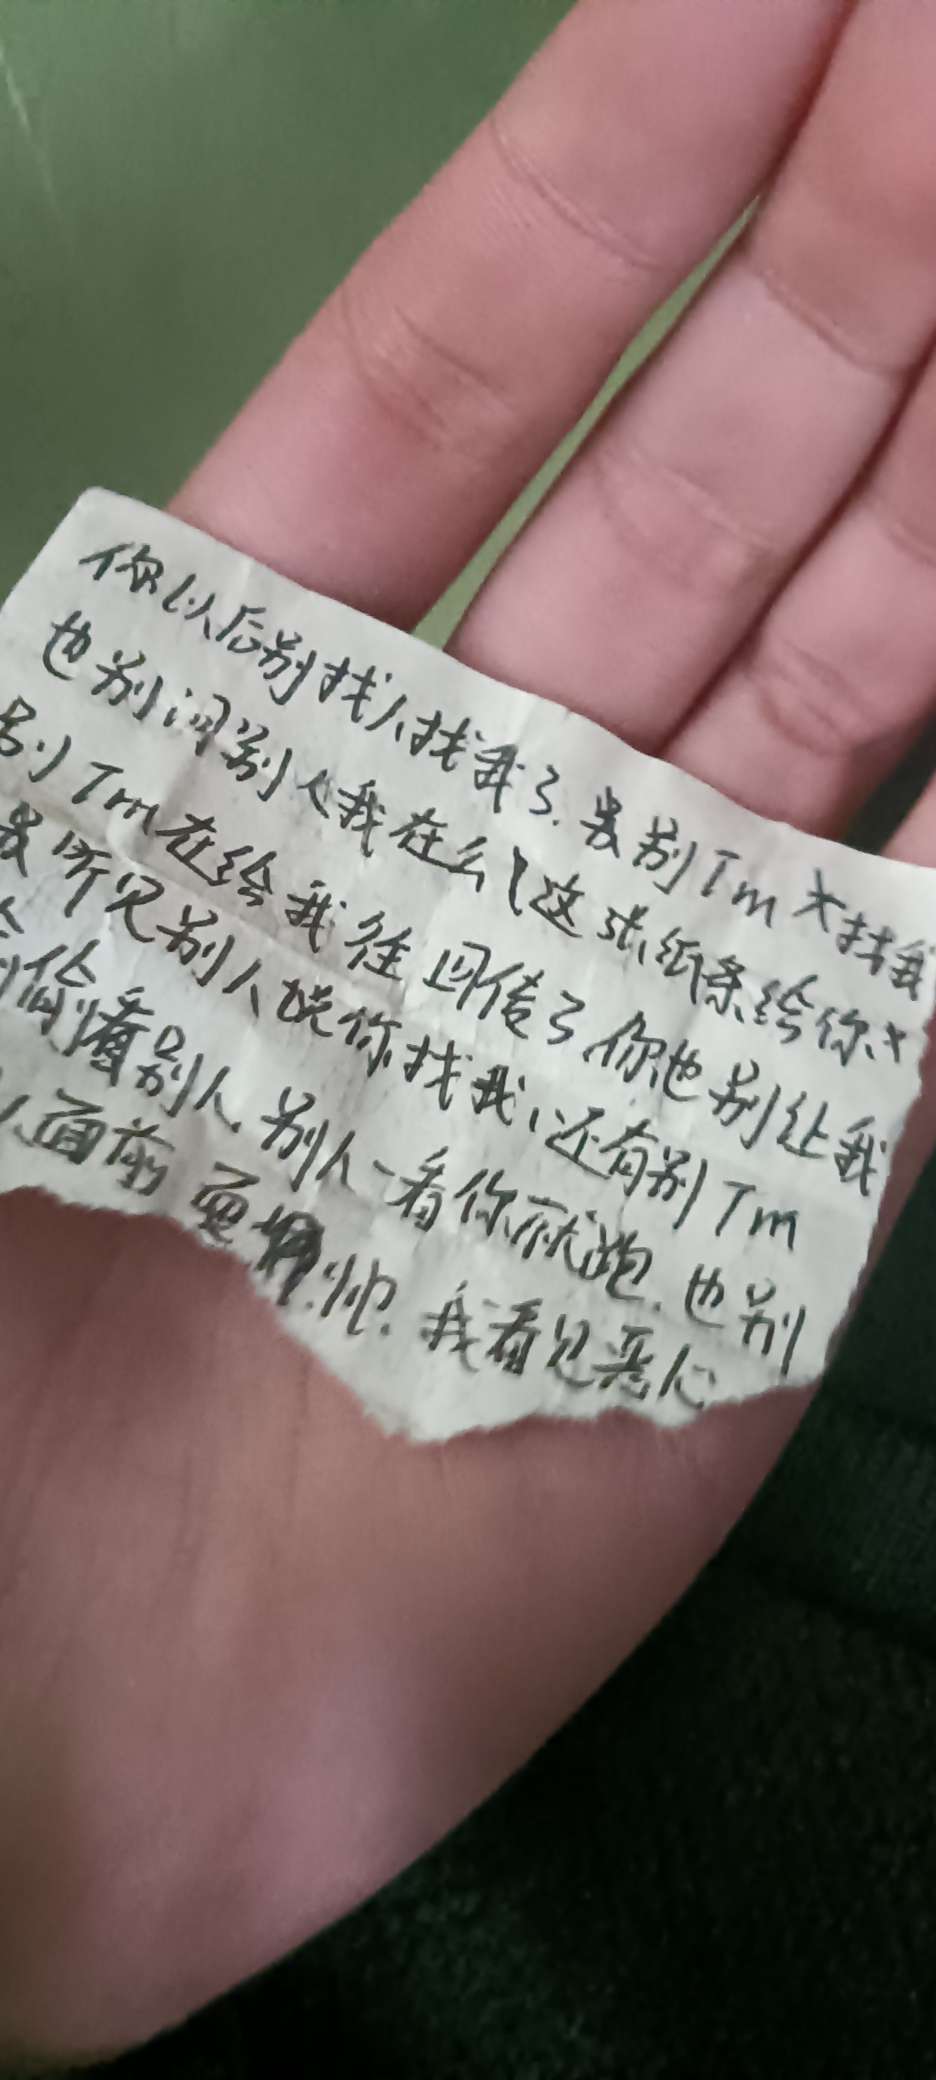 你以后别找人找我了.最别Tm来找我
也别问别人我在么(这张纸条给你
别Tm在给我往回传了,你也别让我
最听见别人说你找我,还有别Tm
偷偷看别人.别人一看你就跑.也别
人面前耍帅.我看见恶心